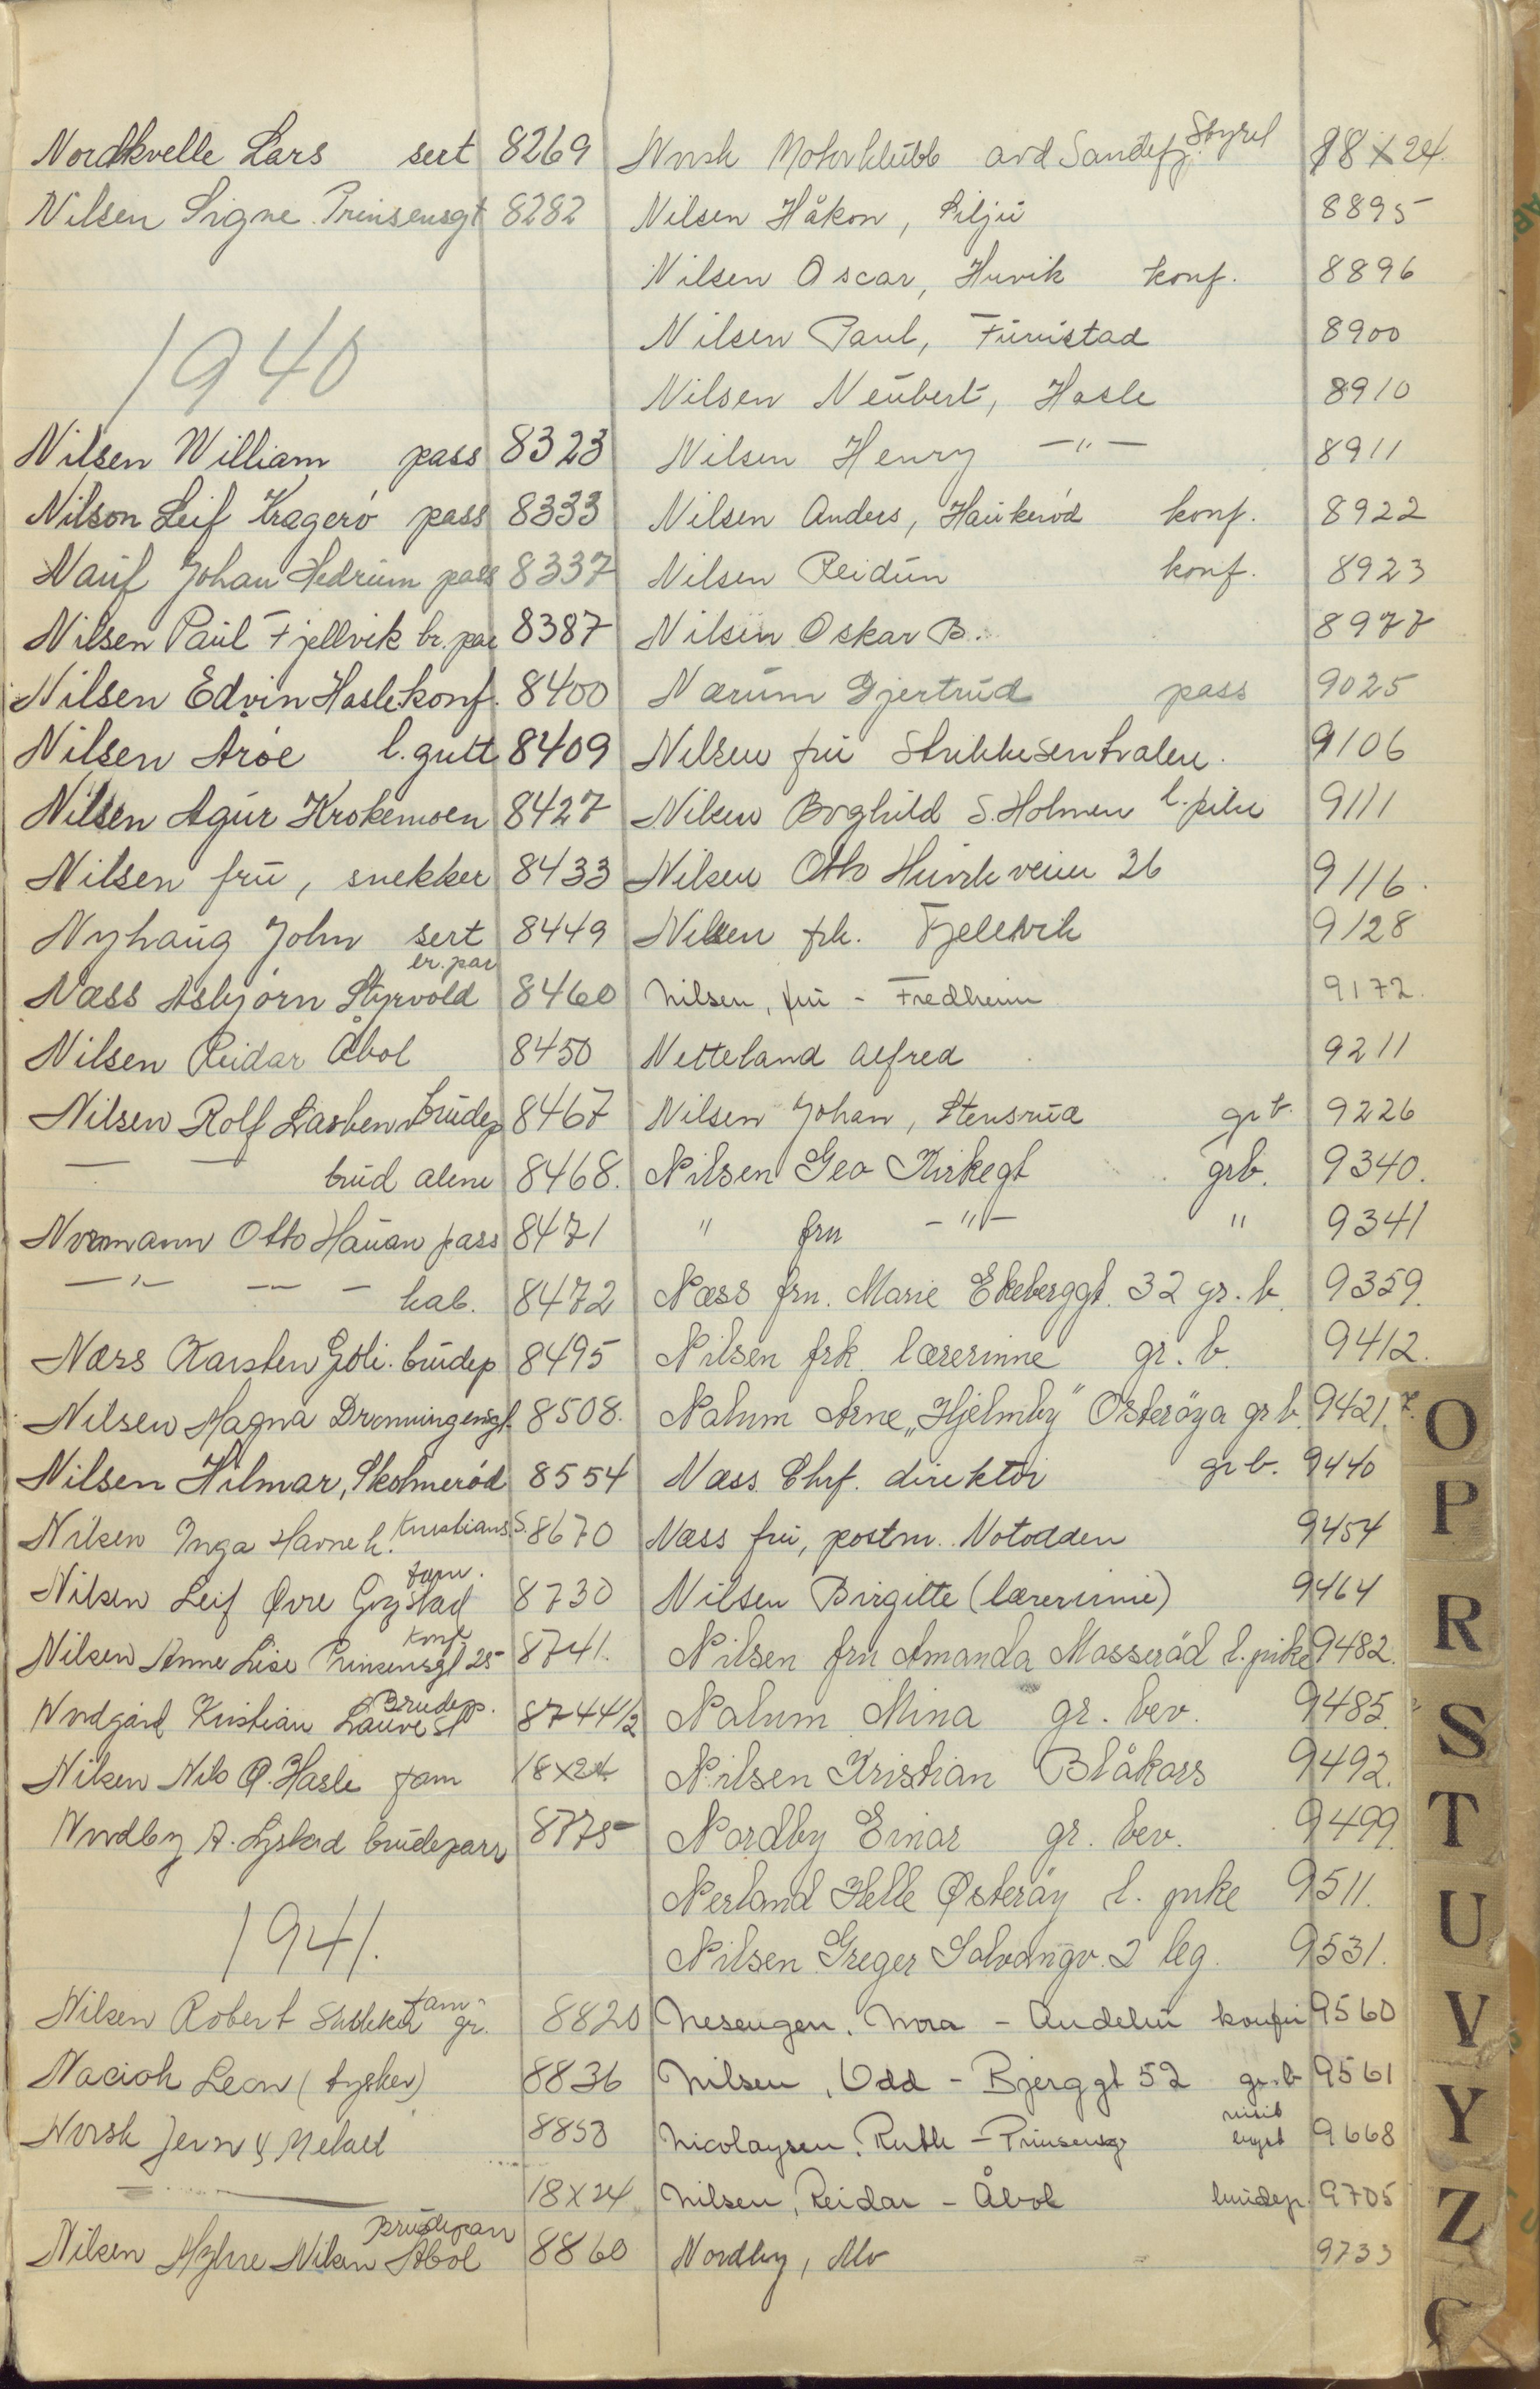 Nordkvelle Lars sert 8269
Nilsen Signe Prinsensgt 8282
1940
Nilsen William pass 8323
Nilson Leif Kragerø pass 8333
Nauf Johan Hedrum pass 8337
Nilsen Paul Fjellvik br.par 8387
Nilsen Edvin Hasle konf. 8400
Nilsen Arøe l. gutt 8409
Nilsen Agur Krokemoen 8427
Nilsen fru, snekker 8433
Nyhaug John sert 8449
br. par
Næss Asbjørn Styrvold 8460
Nilsen Reidar Åbol 8450
Nilsen Rolf brudep 8467
— — brud alene 8468.
Normann Otto Hauan pass 8471
—"— — — kab. 8472
Næss Karsten Goli. brudep 8495
Nilsen Magna Dronningensgt. 8508.
Nilsen Hilmar, Skolmerød 8554
Nilsen Inga Havneh. Kristians.S. 8670
fam.
Nilsen Leif Øvre Gogstad 8730
konf
Nilsen Anne Lise Prinsensgt 25 8741.
Brudep.
Nordgård Kristian Lauve st 8744 1/2
Nilsen Nils Q. Hasle fam 18x24
Nordby A. Lystad brudeparr 8775
1941.
fam
Nilsen Robert gr. 8820
Naciok Leon (tysker) 8836
Norsk Jern & Metall 8853
— 18x24
Brudeparr
Nilsen Myhre Nilsen Åbol 8860
Norsk Motorklubb avd Sandefj. Styret 18x24.
Nilsen Håkon, 8895
Nilsen Oscar, Huvik konf. 8896
Nilsen Paul, Furustad 8900
Nilsen Neubert, Hasle 8910
Nilsen Henry —"— 8911
Nilsen Anders, Haukerød konf. 8922
Nilsen Reidun konf. 8923
Nilsen Oskar B. 8977
Nærum Gjertrud pass 9025
Nilsen fru Strikkesentralen. 9106
Nilsen Borghild S. Holmen l. pike 9111
Nilsen Otto Huvikveien 26 9116.
Nilsen frk. Fjellvik 9128
Nilsen, fru - Fredheim 9172.
Netteland Alfred 9211
Nilsen Johan, Stensrud gr b. 9226
Nilsen Geo Kirkegt grb. 9340.
" fru —"— " 9341
Næss fru. Marie Ekeberggt. 32 gr. b. 9359.
Nilsen frk. lærerinne gr. b. 9412.
Nalum Arne, „Hjelmby" Østerøya gr b. 9421.
Næss Chrf. direktør gr b. 9440
Næss fru, postm. Notodden 9454
Nilsen Birgitte (lærerinne) 9464
Nilsen fru Amanda Masserød l. pike 9482.
Nalum Mina gr. bev. 9485.
Nilsen Kristian Blåkors 9492.
Nordby Einar gr. bev. 9499.
Nerland Helle Østerøy l. pike 9511.
Nilsen Greger Solvangv. 2 leg. 9531.
Nesengen. Nora - 9560
Nilsen, Odd - Bjerggt 52 gr.b 9561
visit
Nicolaysen, Ruth - Prinsensg 9668
Nilsen, Reidar - Åbol brudep. 9705
Nordby, Alv 9733
O
P
R
S
T
U
V
Y
Z